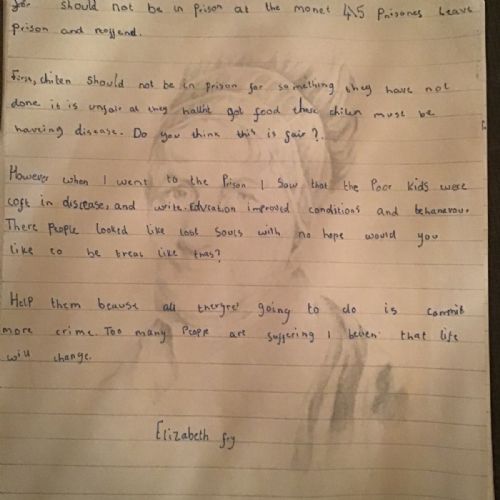 for should not be in prison at the monet 4\5 prisones leave
prison and reoffend.
First, chiten should not be in prison for something they have not
done it is unfair at they havint got food these chiten must be
haveing disease. Do you think this is fair?.
However when I went to the Prison I Saw that the Poor kids were
coft in disease, and write. Education improved conditions and behanerour.
There People looked like lost Souls with no hope would you
like to be treat like thas?
Help them beause all thergre going to do is commit
more crime. Too many People are suffering I beleve that life
will change.
Elizabeth fry